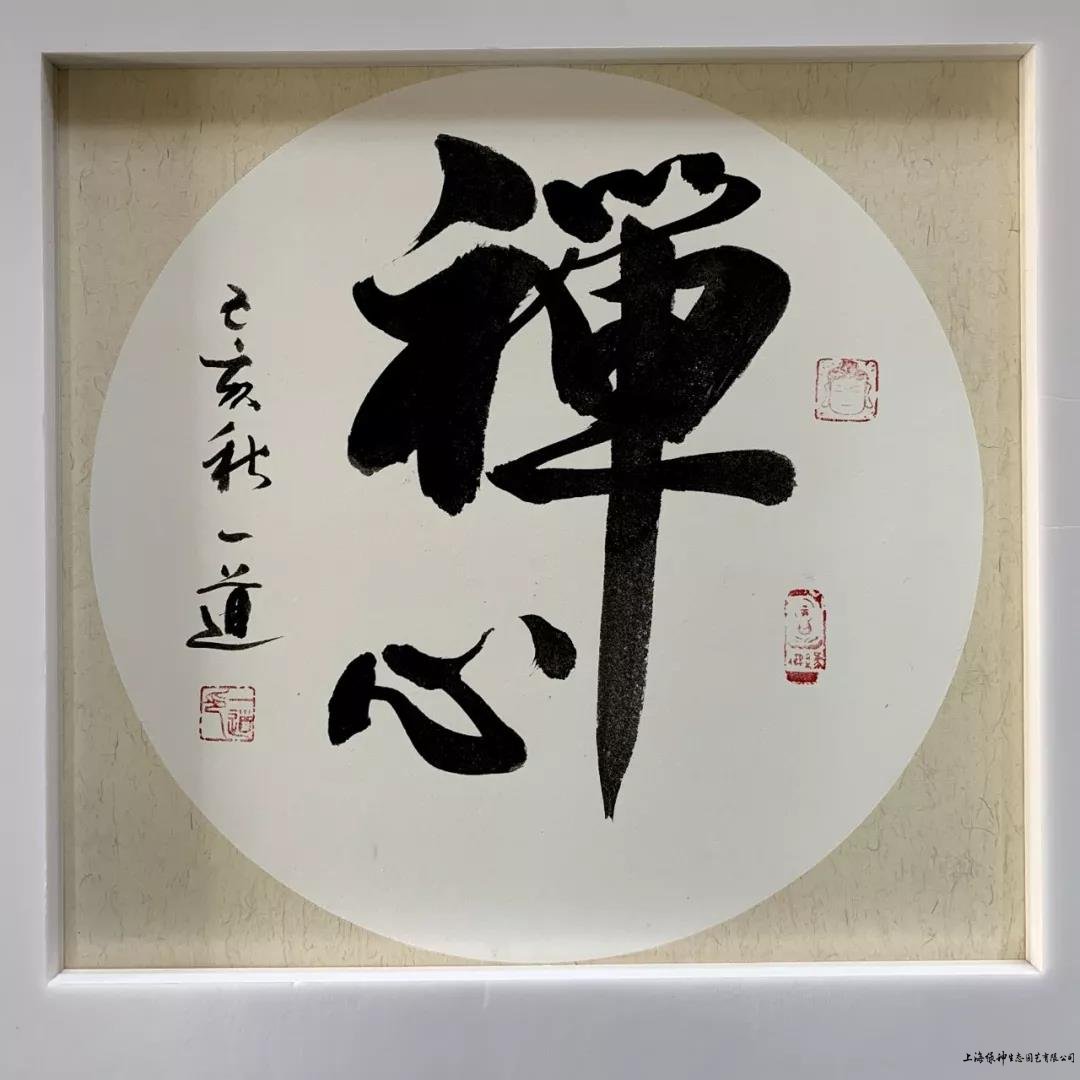 禪心
己亥秋一道
一道
上海缘神生态园艺有限公司